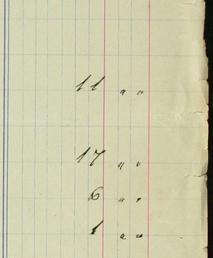 11 " "
17 " "
6 " "
1 " "